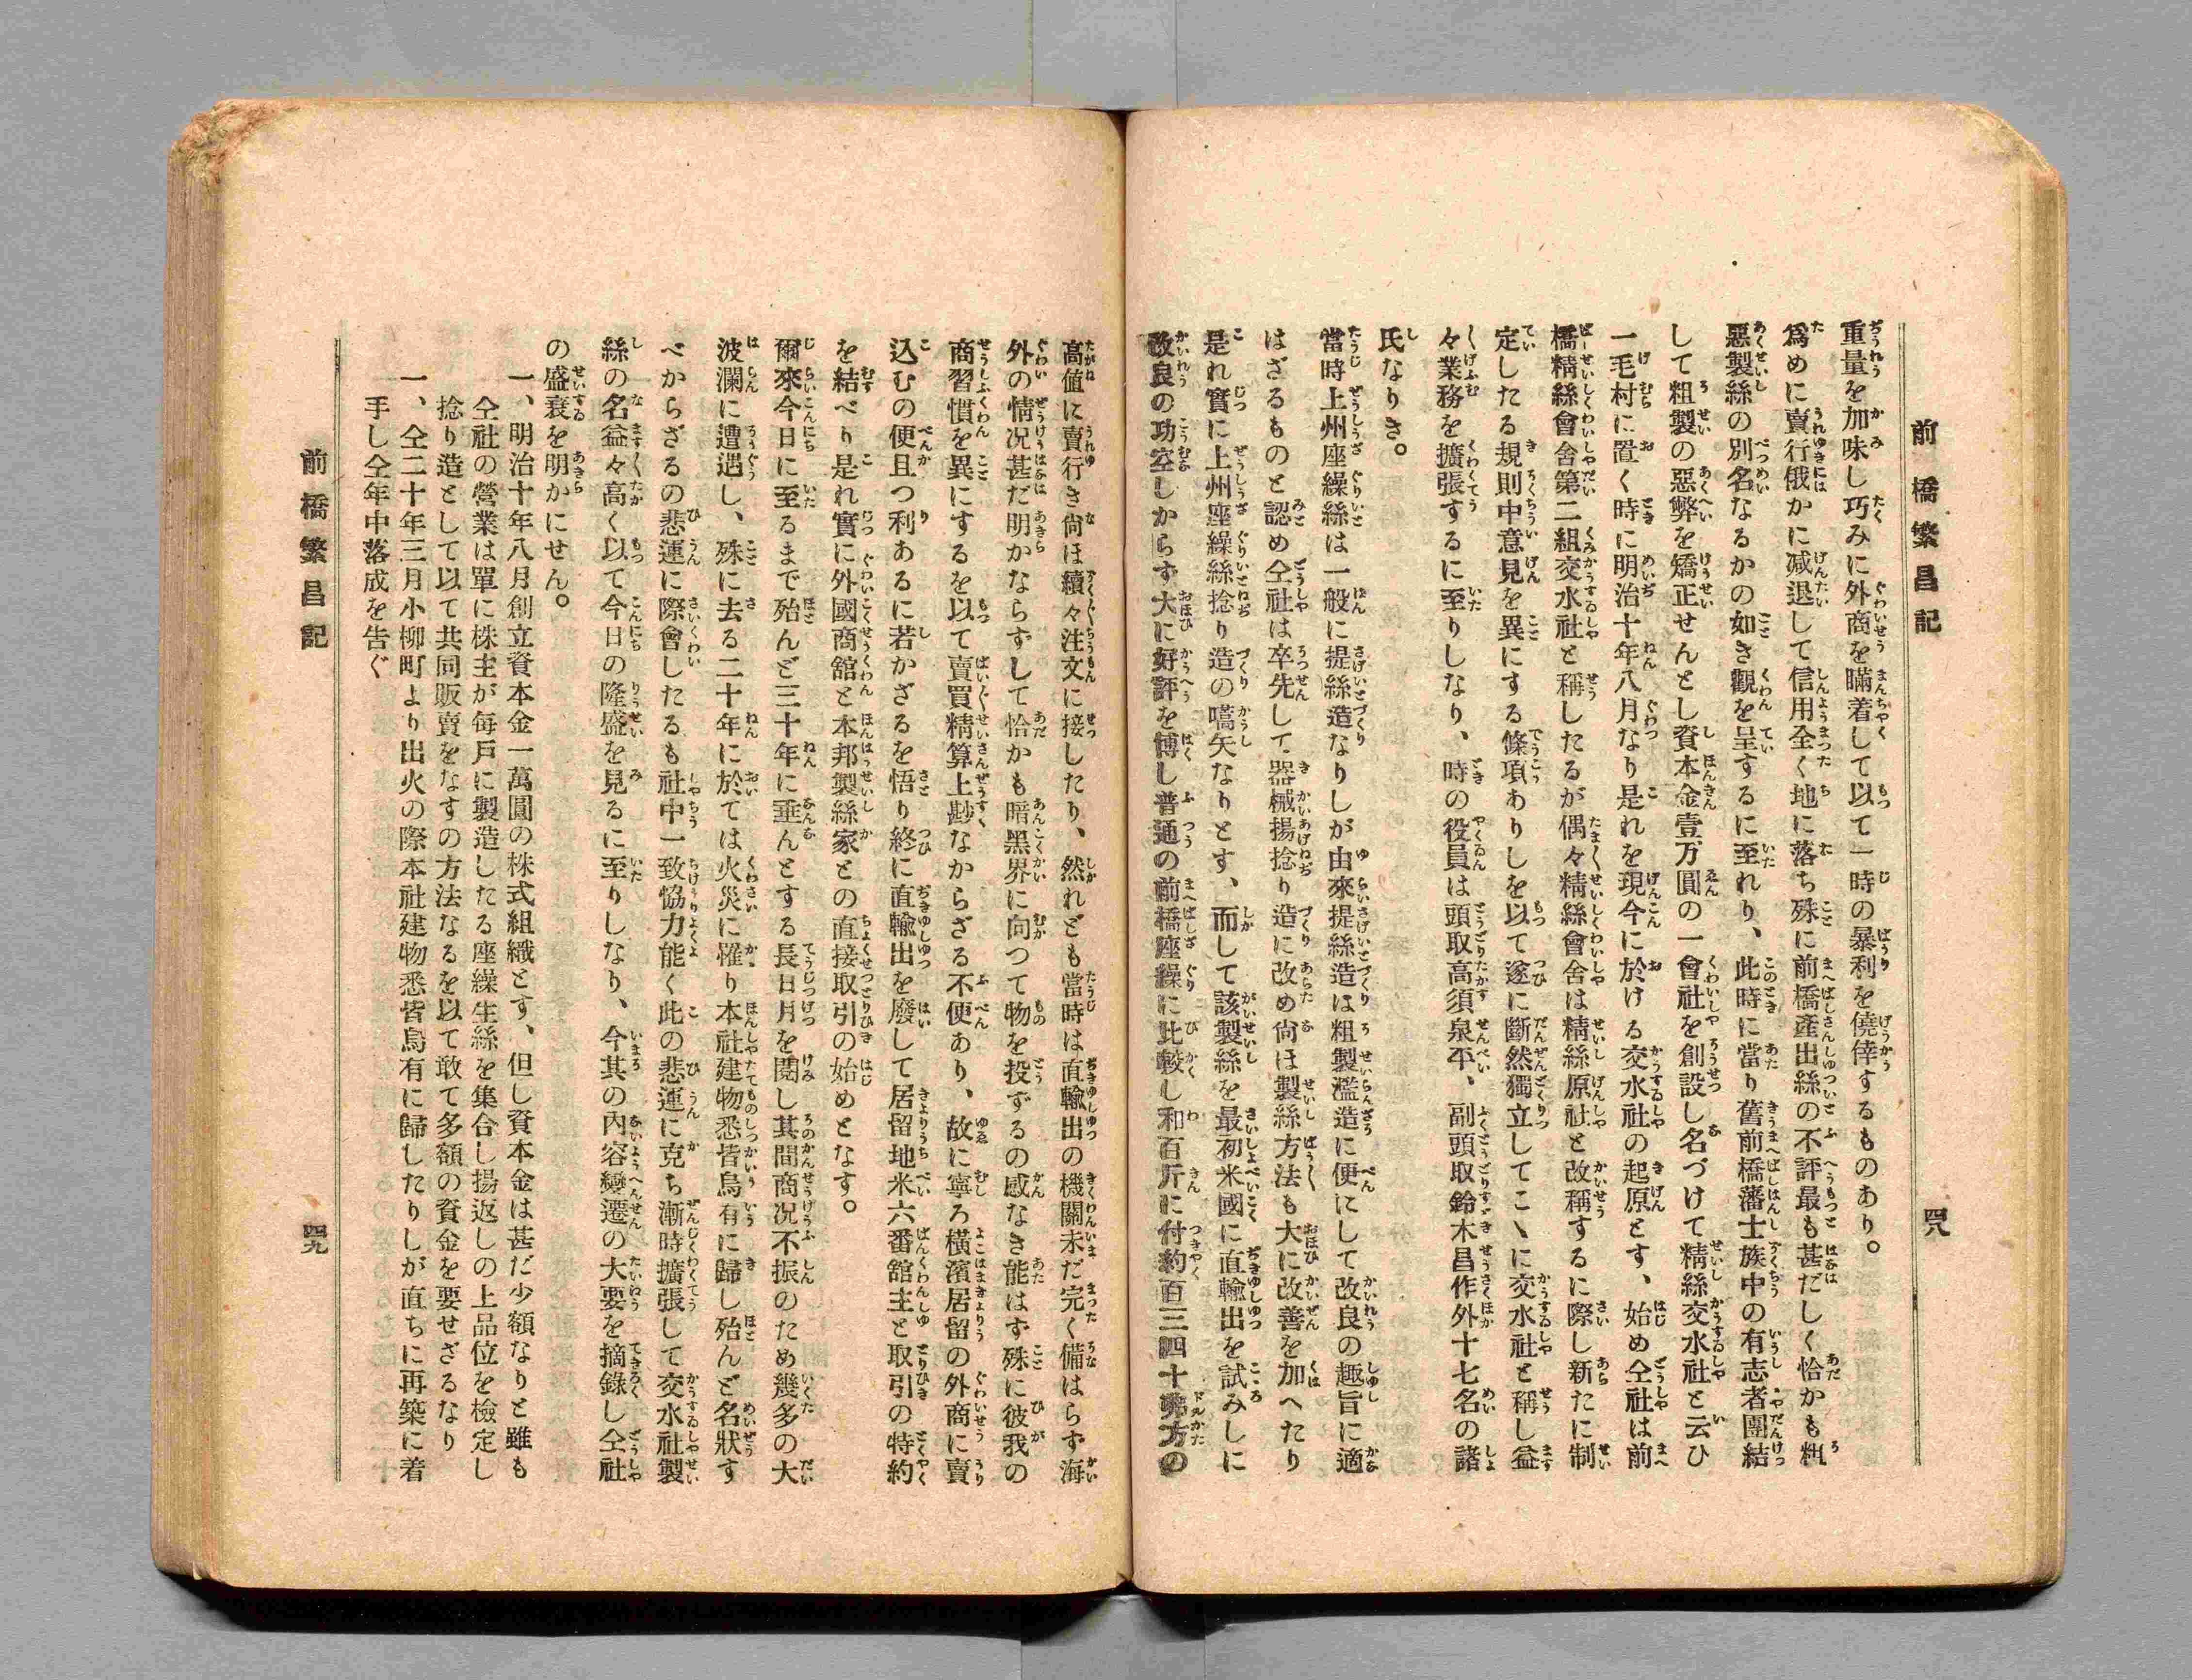 前橋繁昌記
四八
重量を加味し巧みに外商を瞞着して以て一時の暴利を僥倖するものあり。
爲めに賣行俄かに減退して信用全く地に落ち殊に前橋產出絲の不評最も甚だしく恰かも粗
惡製絲の別名なるかの如き觀を呈するに至れり、此時に當り舊前橋藩士族中の有志者團結
して粗製の惡弊を矯正せんとし資本金壹万圓の一會社を創設し名づけて精絲交水社と云ひ
一毛村に置く時に明治十年八月なり是れを現今に於ける交水社の起原とす、始め仝社は前
橋精絲會舍第二組交水社と稱したるが偶々精絲會舍は精絲原社と改稱するに際し新たに制
定したる規則中意見を異にする條項ありしを以て遂に斷然獨立してこゝに交水社と稱し益
々業務を擴張するに至りしなり、時の役員は頭取高須泉平、副頭取鈴木昌作外十七名の諸
氏なりき。
當時上州座繰絲は一般に提絲造なりしが由來提絲造は粗製濫造に便にして改良の趣旨に適
はざるものと認め仝社は卒先して器械揚捻り造に改め尙ほ製絲方法も大に改善を加へたり
是れ實に上州座繰絲捻り造の嚆矢なりとす、而して該製絲を最初米國に直輸出を試みしに
改良の功空しからす大に好評を博し普通の前橋座繰に比較し和百斤に付約百三四十弗方の
高値に賣行き尙ほ續々注文に接したり、然れども當時は直輸出の機關未だ完く備はらず海
外の情况甚だ明かならずして恰かも暗黑界に向つて物を投ずるの感なき能はず殊に彼我の
商習慣を異にするを以て賣買精算上尠なからざる不便あり、故に寧ろ橫濱居留の外商に賣
込むの便且つ利あるに若かざるを悟り終に直輸出を廢して居留地米六番舘主と取引の特約
を結べり是れ實に外國商舘と本邦製絲家との直接取引の始めとなす。
爾來今日に至るまで殆んど三十年に垂んとする長日月を閱し其間商况不振のため幾多の大
波瀾に遭遇し、殊に去る二十年に於ては火災に罹り本社建物悉皆烏有に歸し殆んど名狀す
べからざるの悲運に際會したるも社中一致協力能く此の悲運に克ち漸時擴張して交水社製
絲の名益々高く以て今日の隆盛を見るに至りしなり、今其の內容變遷の大要を摘錄し仝社
の盛衰を明かにせん。
一、明治十年八月創立資本金一萬圓の株式組織とす、但し資本金は甚だ少額なりと雖も
仝社の營業は單に株主が每戶に製造したる座繰生絲を集合し揚返しの上品位を檢定し
捻り造として以て共同販賣をなすの方法なるを以て敢て多額の資金を要せざるなり
一、仝二十年三月小柳町より出火の際本社建物悉皆烏有に歸したりしが直ちに再築に着
手し仝年中落成を告ぐ
前橋繁昌記
四九